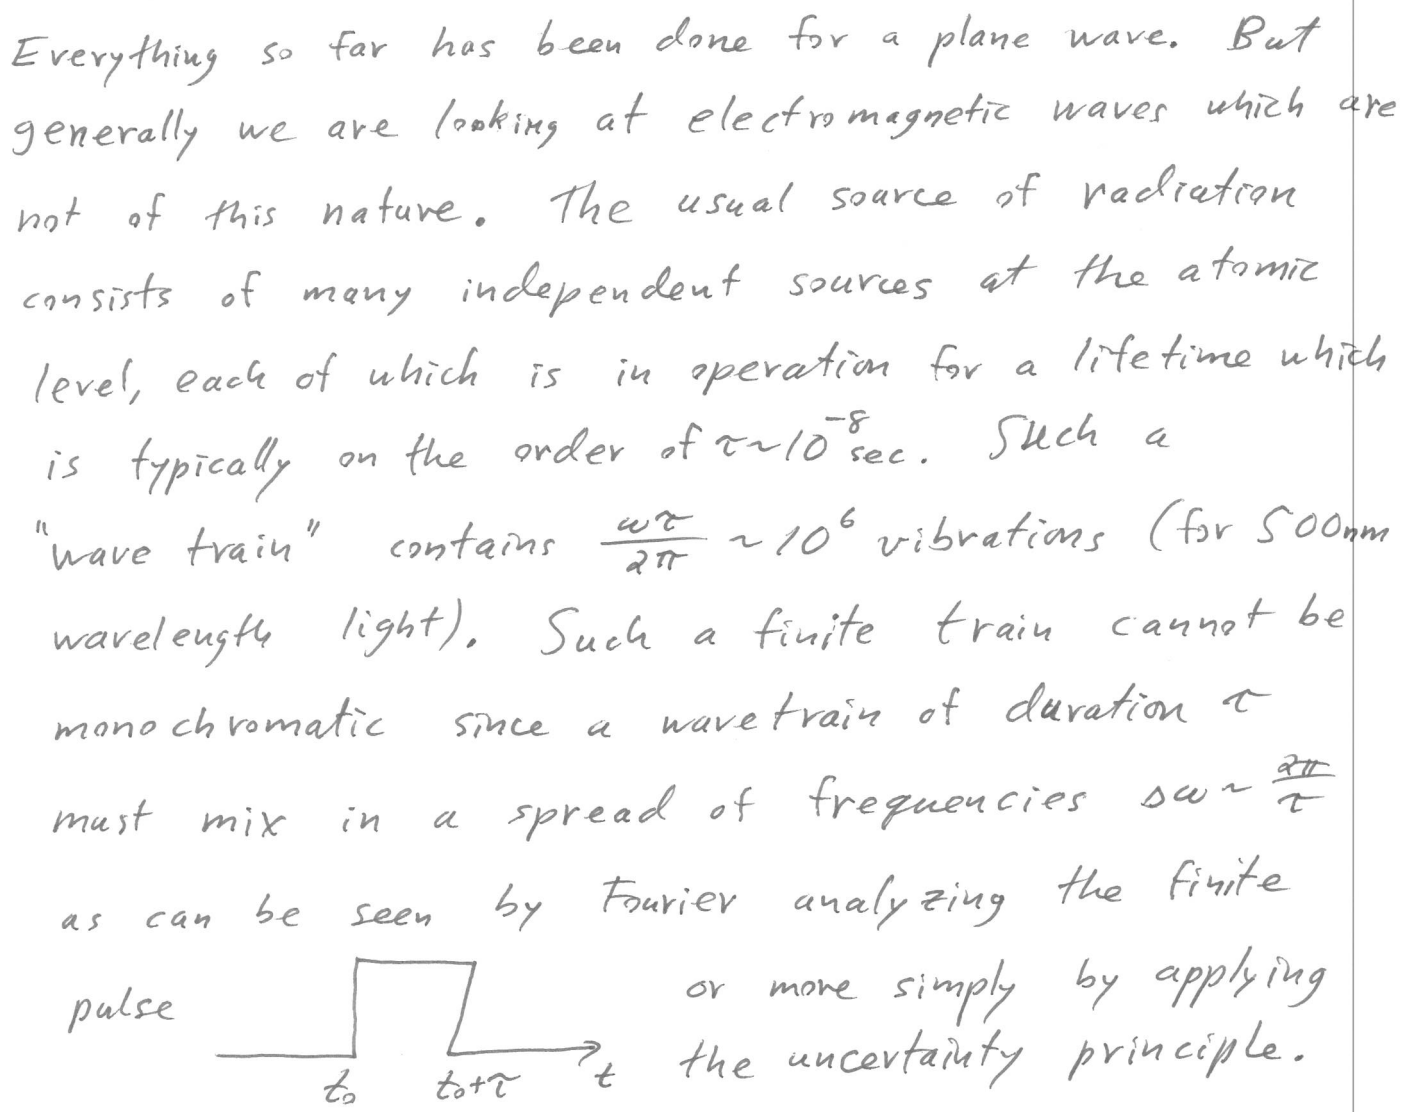 Everything so far has been done for a plane wave. But
generally we are looking at electromagnetic waves which are
not of this nature. The usual source of radiation
consists of many independent sources at the atomic
level, each of which is in operation for a lifetime which
is typically on the order of τ~10⁻⁸ sec. Such a
"wave train" contains ωτ/2π ~ 10⁶ vibrations (for 500nm
wavelength light). Such a finite train cannot be
monochromatic since a wavetrain of duration τ
must mix in a spread of frequencies Δω ~ 2π/τ
as can be seen by Fourier analyzing the finite
pulse or more simply by applying
the uncertainty principle.
t₀ t₀+τ t